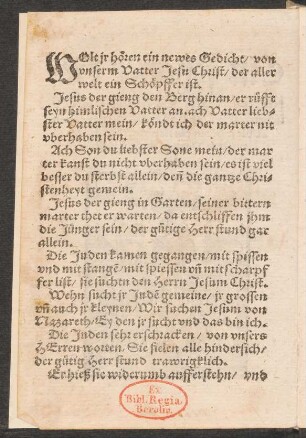 WOlt jr hören ein newes Gedicht/ von
vnserm Vatter Jesu Christ/ der aller
welt ein Schöpffer ist.
Jesus der gieng den Berg hinan/ er rüfft
seyn himlischen Vatter an. ach Vatter lieb-
ster Vatter mein/ köndt ich der marter nit
vberhaben sein.
Ach Son du liebster Sone mein/ der mar
ter kanst du nicht vberhaben sein/ es ist viel
besser du sterbst allein/ deñ die gantze Chri-
stenheyt gemein.
Jesus der gieng in Garten/ seiner bittern
marter thet er warten/ da entschlieffen jhm
die Jünger sein/ der gütige Herr stund gar
allein.
Die Juden kamen gegangen/ mit spissen
vnd mit stangẽ/ mit spiessen vñ mit scharpf
fer list/ sie suchtn den Herrn Jesum Christ.
Wehn sucht jr Judẽ gemeine/ jr grossen
vñ auch jr kleynen/ Wir suchen Jesum von
Nazareth/ Ey den jr sucht vnd das bin ich.
Die Juden sehr erschracken/ von vnsers
HErren worten. Sie fielen alle hindersich/
der gütig Herr stund trawrigklich.
Er hieß sie widerumb aufferstehn/ vnd
Ex
Bibl. Regia
Berolin.